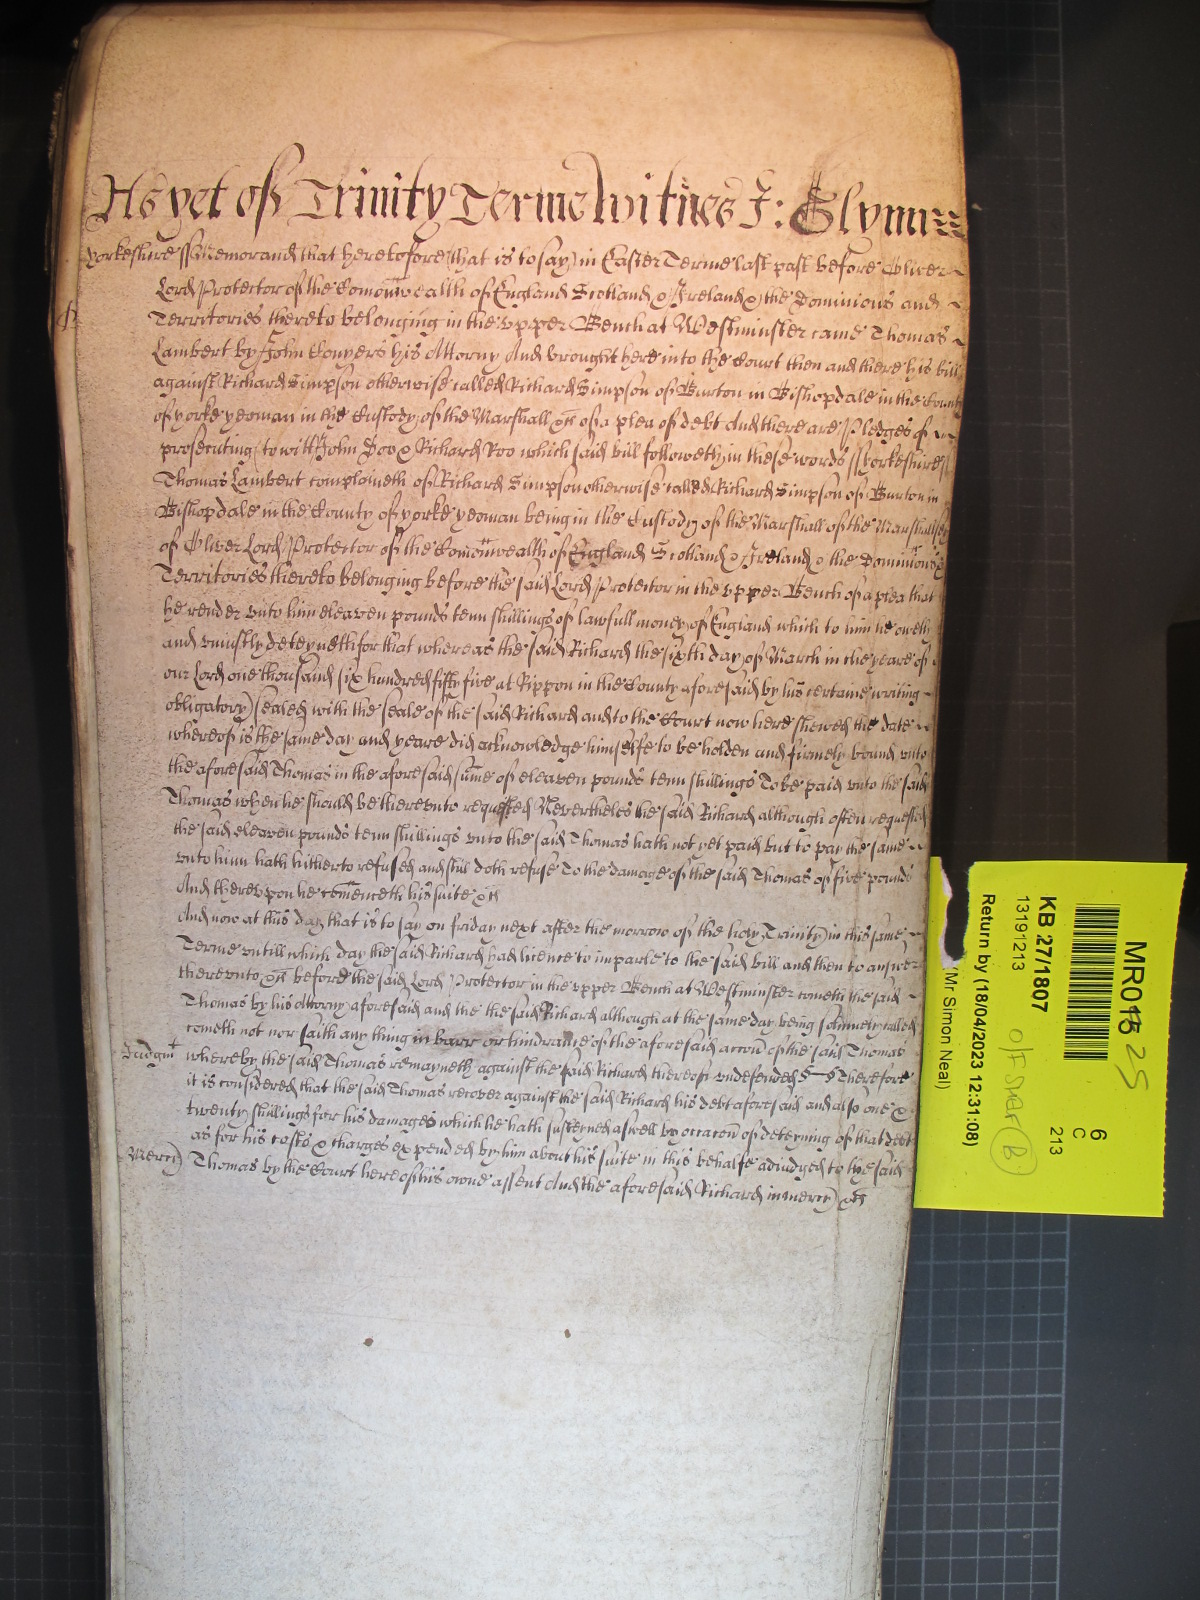 As yet of Trinity Terme Witnes J: Glynn
Yorkeshire ss Memorand that heretofore (that is to say) in Easter Terme last past before Oliver
Lord Protector of the Comonwealth of England Scotland & Ireland & the Dominions and
Territories thereto belonging in the upper Bench at Westminster came Thomas
Lambert by John Conyers his Attorny And brought here into the Court then and there his bill
against Richard Simpson otherwise called Richard Simpson of Burton in Bishopdale in the County
of yorke yeoman in the Custody of the Marshall &c of a plea of debt And there are Pledges of
prosecuting (to witt) John Doo & Richard Roo which said bill followeth in these words ss Yorkeshire ss
Thomas Lambert complaineth of Richard Simpson otherwise called Richard Simpson of Burton in
Bishopdale in the County of yorke yeoman being in the Custody of the Marshall of the Marshallsey
of Oliver Lord Protector of the Comonwealth of England Scotland & Ireland & the Dominions &
Territories thereto belonging before the said Lord Protector in the upper Bench of a plea that
he render unto him eleaven pounds tenn shillings of lawfull money of England which to him he oweth
and uniustly deteyneth for that whereas the said Richard the sixth day of March in the yeare of
our Lord one thousand six hundred fifty five at Rippon in the County aforesaid by his certaine writing
obligatory sealed with the seale of the said Richard and to the Court now here shewed the date
whereof is the same day and yeare did acknowledge himselfe to be holden and firmely bound unto
the aforesaid Thomas in the aforesaid sume of eleaven pounds tenn shillings To be paid unto the said
Thomas when he should be thereunto requested Nevertheles the said Richard although often requested
the said eleaven pounds tenn shillings unto the said Thomas hath not yet paid but to pay the same
unto him hath hitherto refused and still doth refuse To the damage of the said Thomas of five pounds
And thereupon he comenceth his suite &c
And now at this day that is to say on friday next after the morrow of the holy Trinity in this same
Terme untill which day the said Richard had licence to imparle to the said bill and then to answer
thereunto &c before the said Lord Protector in the upper Bench at Westminster cometh the said
Thomas by his Attorny aforesaid and the the said Richard although at the same day being solemnely called
cometh not nor saith any thing in barr or hindrance of the aforesaid accon of the said Thomas
Judgmt
whereby the said Thomas remayneth against the said Richard thereof undefended Therefore
it is considered that the said Thomas recover against the said Richard his debt aforesaid and also one &
twenty shillings for his damages which he hath susteyned aswell by occacon of deteyning of that debt
as for his costs & charges expended by him about his suite in this behalfe adiudged to the said
Mercy
Thomas by the Court here of his owne assent And the aforesaid Richard in mercy &c
MR01 25
6
C
213
KB 27/1807
13191213
Return by (18/04/2023 12:31:08)
(Mr Simon Neal)